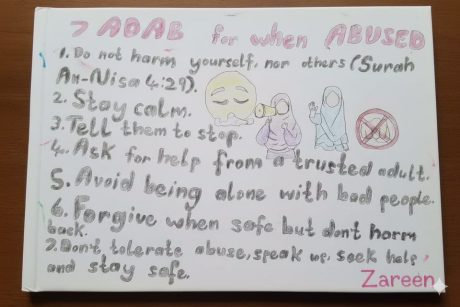 7 ADAB for when ABUSED
1. Do not harm yourself, nor others (Surah
An-Nisa 4:29).
2. Stay calm.
3. Tell them to stop.
4. Ask for help from a trusted adult.
5. Avoid being alone with bad people.
6. Forgive when safe but don't harm
back.
7. Don't tolerate abuse, speak up, seek help
and stay safe.
Zareen